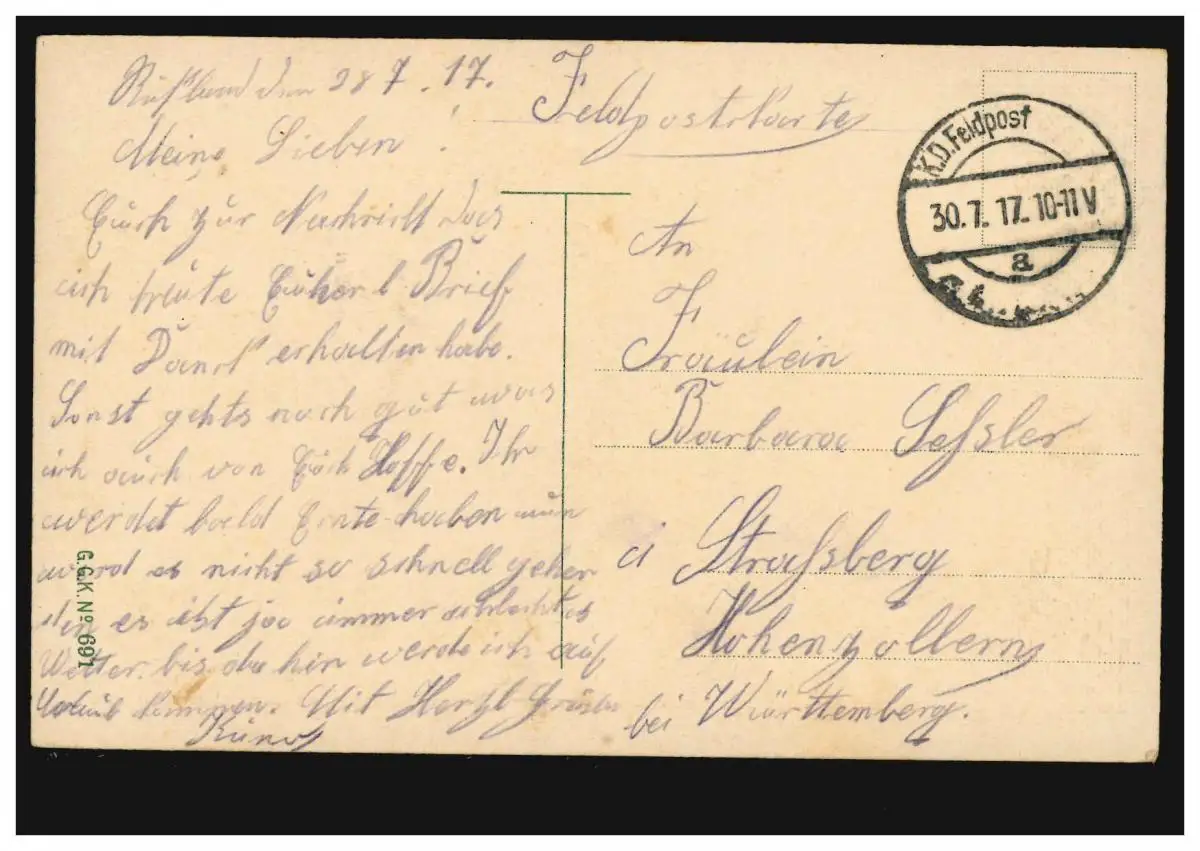 Rußland den 28 7. 17.
Meine Lieben!
Euch zur Nachricht das
ich heute Euher l Brief
mit Dank erhalten habe.
Sonst gehts noch gut was
ich auch von Euch Hoffe. Ihr
werdet bald Ernte haben nun
werd es nicht so schnell gehen
den es ist ja immer schlechtes
Wetter bis da hin werde ich auf
Urlaub kommen. Mit Herzl Grüße
Feldpostkarte
K.D. Feldpost
30.7. 17. 10-11 V
a
An
Fräulein
Barbara Seßler
Straßberg
Hohenzollern
bei Württemberg.
G.G.K. No 691